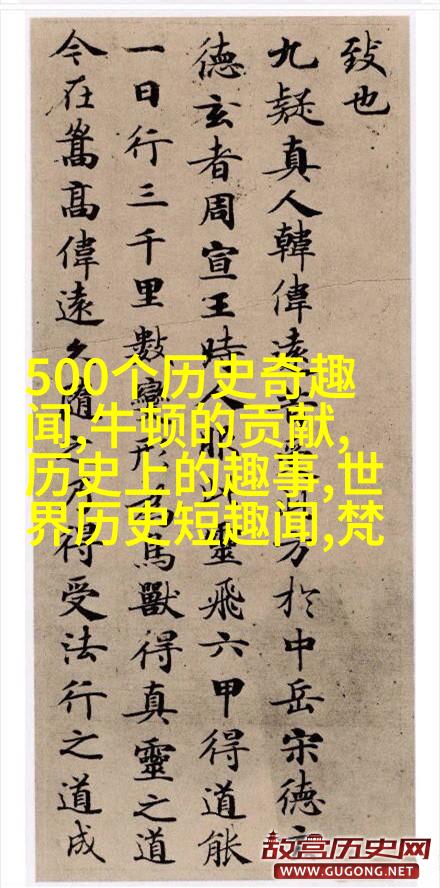 致也
九疑真人韓偉遠方於中岳宋德玄
德玄者周宣王時人服此靈飛六甲得道能
一日行三千里數變形為鳥獸得真靈之道
今在嵩高偉遠久隨之乃得受法行之道成
500个历史奇趣
闻,牛顿的贡献,
历史上的趣事,世
界历史短趣闻,梵
故宫历史网
WWW.GUGONG.NET